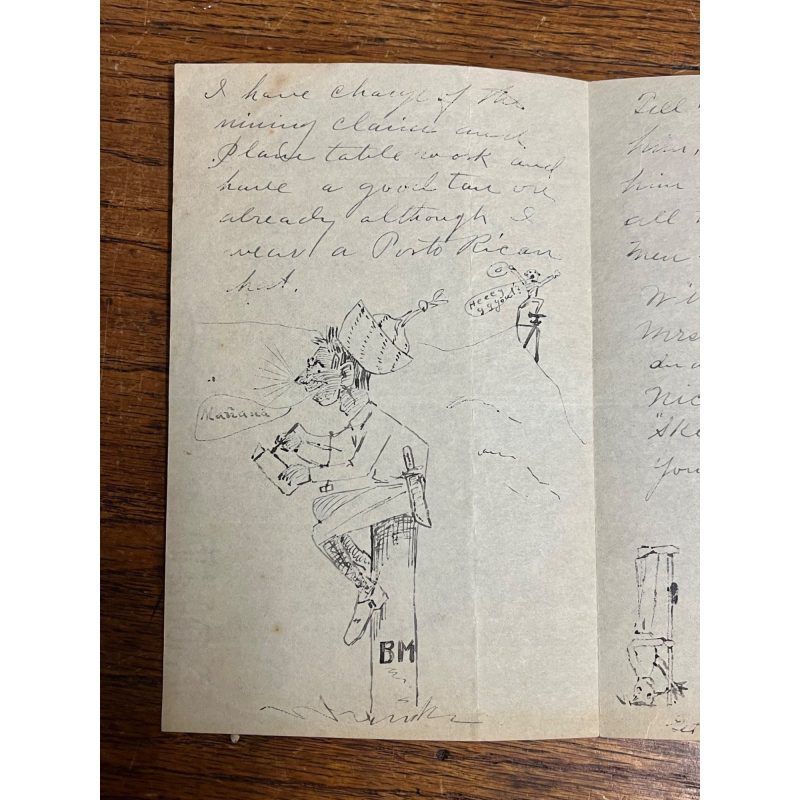 I have charge of the
mining claims and
Plain table work and
have a good tan on
already although I
wear a Porto Rican
hat.
Heeey
ggyou!!
Mañana
BM
Tell
him,
him
all
Men
Wil
Mrs
Nic
"Ske
You